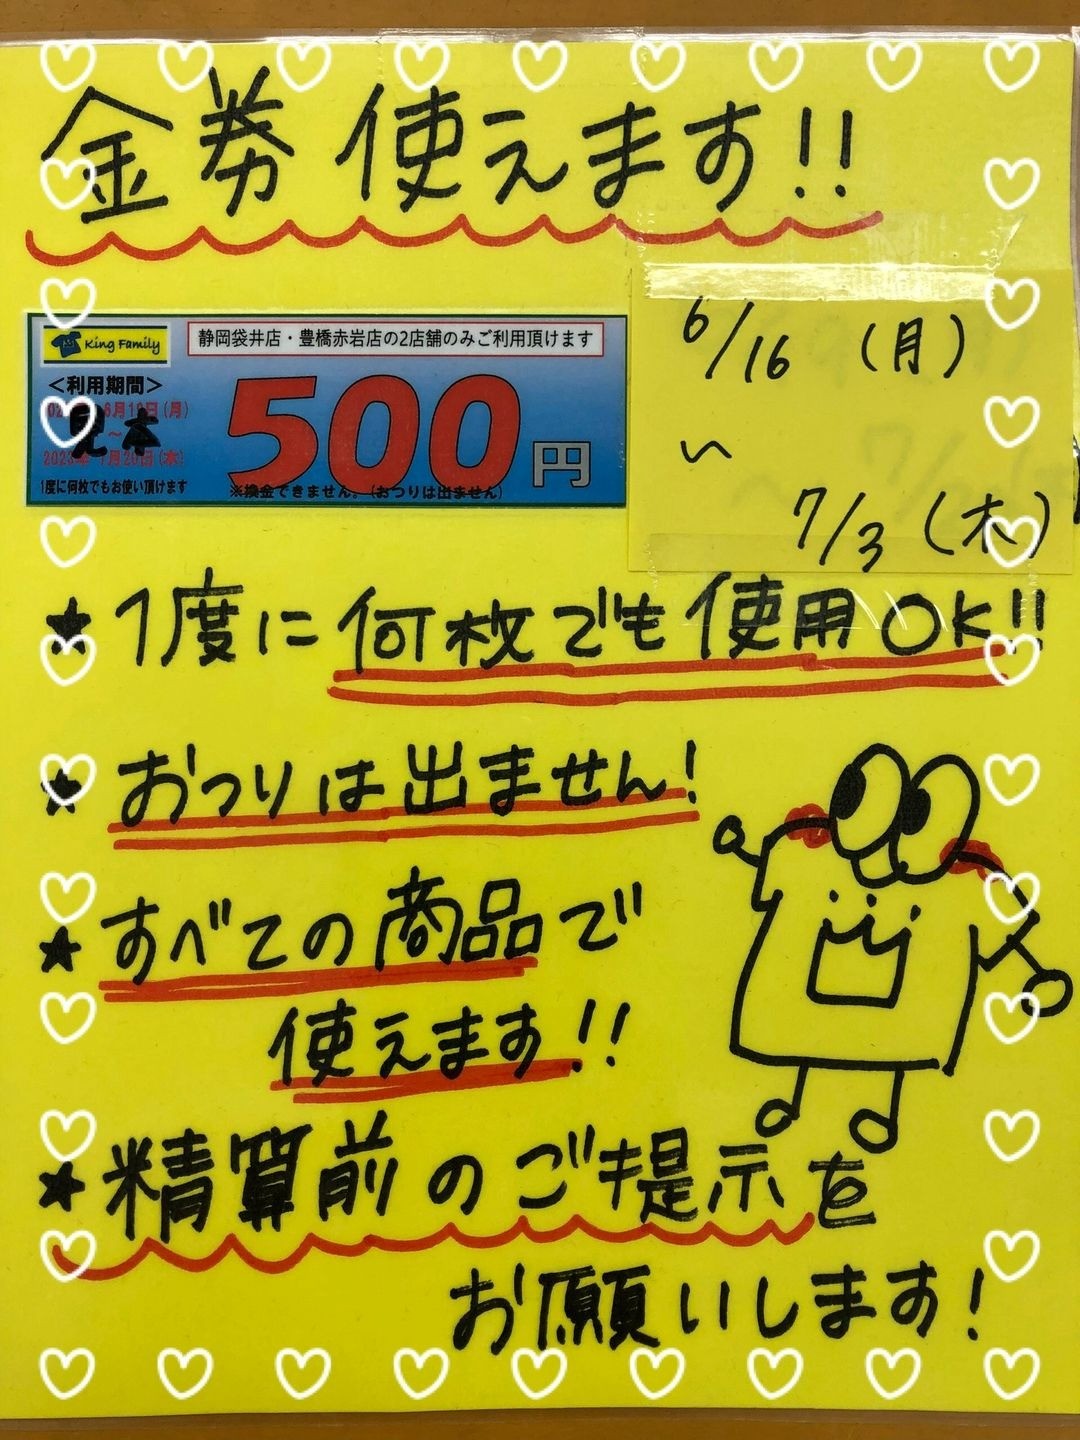 金券使えます!!
King Family
静岡袋井店・豊橋赤岩店の2店舗のみご利用頂けます
＜利用期間＞
6月19日(月)
～
見本
月20日(木)
1度に何枚でもお使い頂けます
500円
※換金できません。(おつりは出ません)
6/16(月)
～
7/3(木)
★1度に何枚でも使用OK!!
★おつりは出ません!
★すべての商品で
使えます!!
★精算前のご提示を
お願いします!